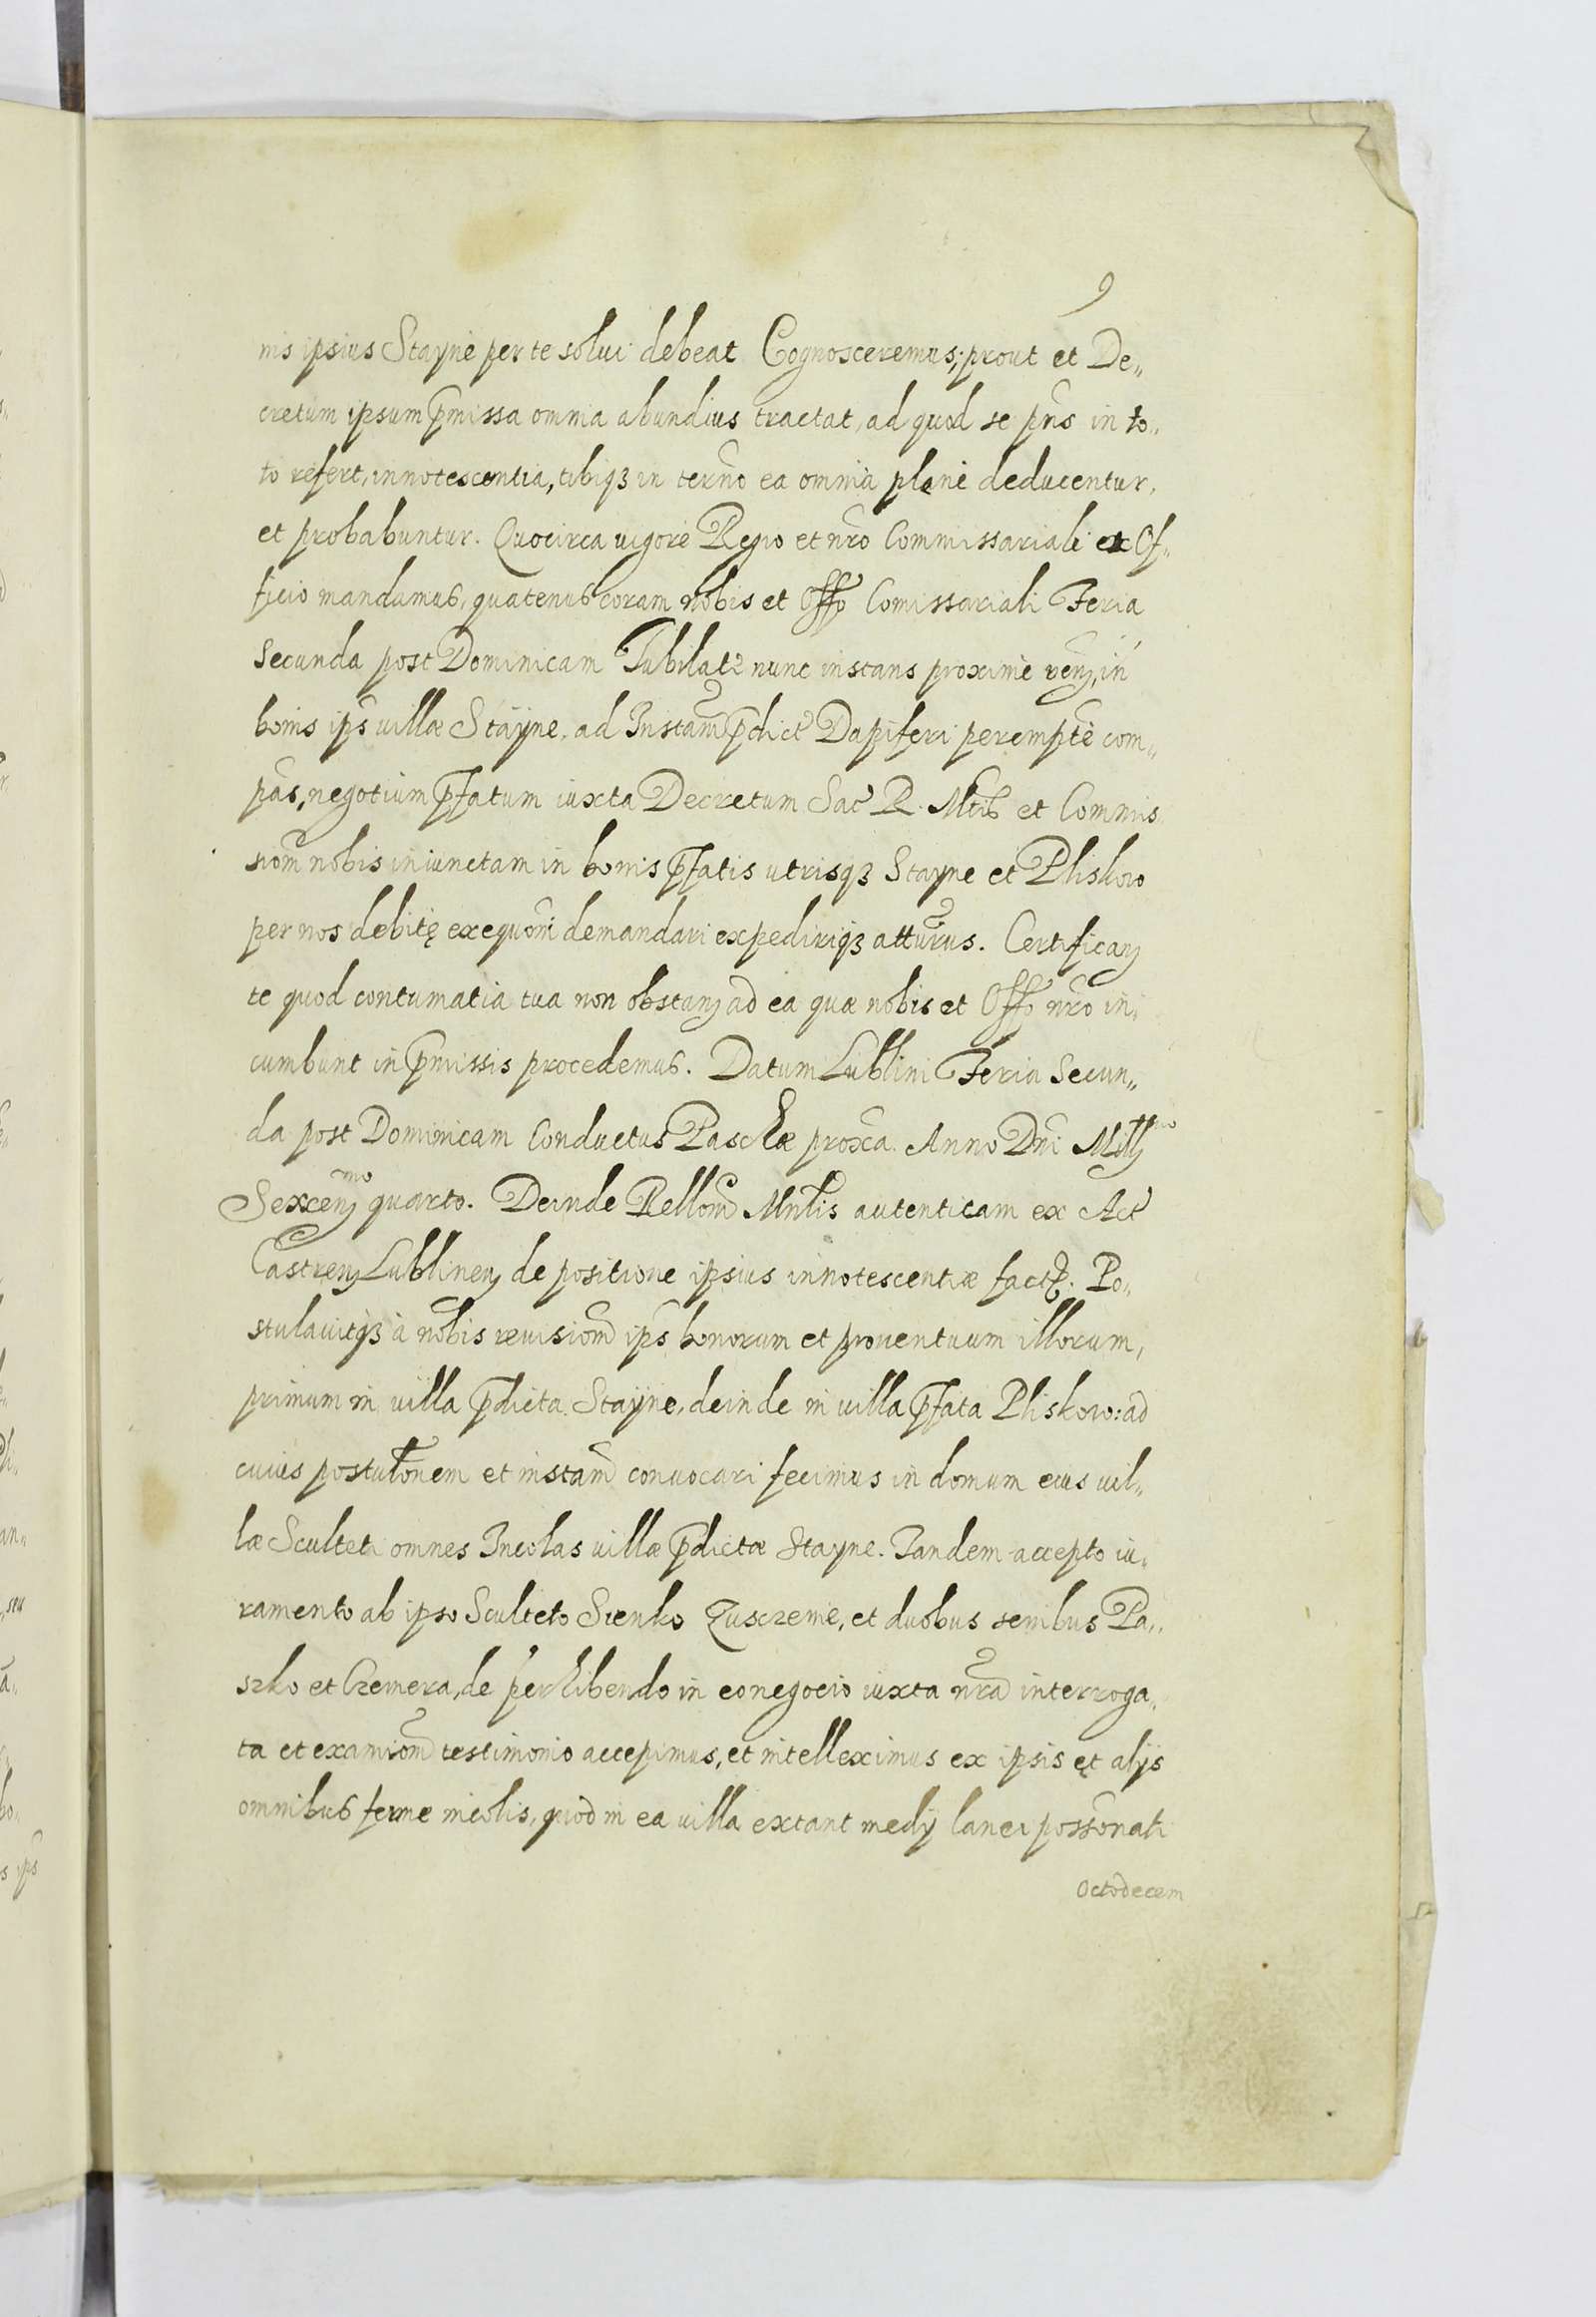 9
nis ipsius Stayne per te solui debeat Cognosceremus; prout et De„
cretum ipsum p̄missa omnia abundius tractat, ad quod se pn̄s in to„
to refert, innotescentia, tibiqꝫ in terno ea omnia plene deducentur,
et probabuntur. Quocirca vigore Regio et nr̄o Commissariali ex Of„
ficio mandamus, quatenus coram nobis et Offo Comissariali Feria
Secunda post Dominicam Jubilate nunc instans proxime ven, in
bonis ips villæ Stayne, ad Instam p̄dict Dapiferi perempte com„
pas, negotium p̄fatum iuxta Decretum Sac R. Mtis et Commis
siom nobis iniunctam in bonis p̄fatis utrisqꝫ Stayne et Pliskow
per nos debitę exequom demandari expediriqꝫ atturus. Certifican
te quod contumatia tua non obstan ad ea quæ nobis et Offo nr̄o in„
cumbunt in p̄missis procedemus. Datum Lublini Feria Secun„
da post Dominicam Conductus Paschæ proxa. Anno Dni Mill^mo
Sexcen^mo quarto. Deinde Rellom Mnlis autenticam ex Act
Castren Lublinen de positione ipsius innotescentiæ fact. Po„
stulavitqꝫ à nobis reuisiom ips bonorum et prouentuum illorum,
primum in villa p̄dicta Stayne, deinde in villa p̄fata Pliskow: ad
cuius postulonem et instam conuocari fecimus in domum eius vil„
læ Sculteti omnes Incolas villæ p̄dictæ Stayne. Tandem accepto iu„
ramento ab ipso Sculteto Sienko Zusczemie, et duobus senibus Pa„
szko et Czemera, de perhibendo in eo negocio iuxta nr̄a interroga„
ta et examiom testimonio accepimus, et intelleximus ex ipsis et alijs
omnibus ferme incolis, quod in ea villa extant medij lanei possonati
Octodecem